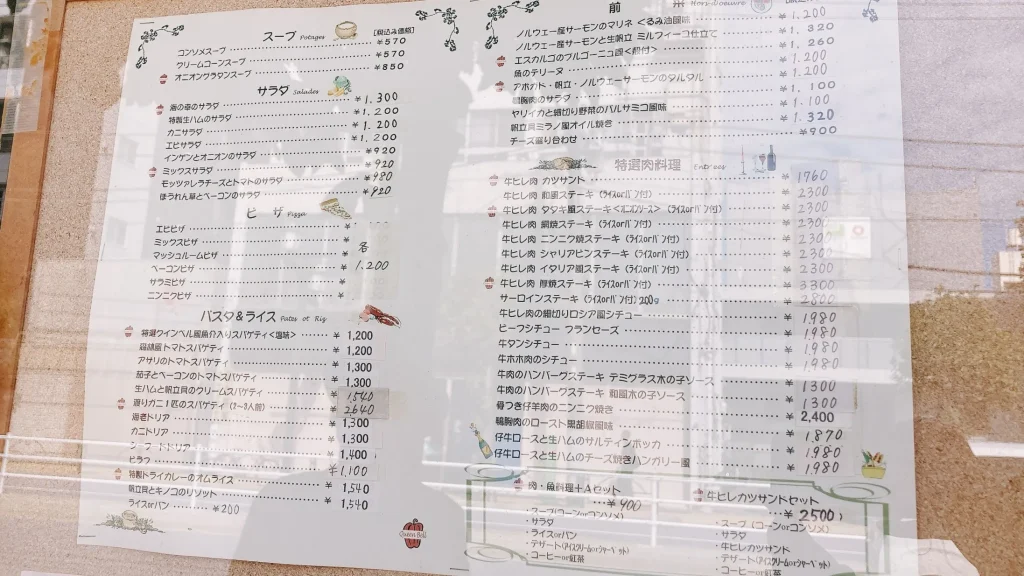 スープ Potages
[税込み価格]
コンソメスープ ¥570
クリームコーンスープ ¥570
オニオングラタンスープ ¥850
サラダ Salades
海の幸のサラダ ¥1.300
特製生ハムのサラダ ¥1.200
カニサラダ ¥1.200
エビサラダ ¥1.200
インゲンとオニオンのサラダ ¥920
ミックスサラダ ¥920
モッツァレラチーズとトマトのサラダ ¥980
ほうれん草とベーコンのサラダ ¥920
ピザ Pizza
エビピザ ¥
ミックスピザ ¥
マッシュルームピザ ¥ 各
ベーコンピザ ¥ 1.200
サラミピザ ¥
ニンニクピザ ¥
パスタ&ライス Pates et Riz
特選クインベル風魚介入りスパゲティ<塩味> ¥ 1,200
漁師風トマトスパゲティ ¥ 1,200
アサリのトマトスパゲティ ¥ 1,300
茄子とベーコンのトマトスパゲティ ¥ 1,300
生ハムと帆立貝のクリームスパゲティ 1,540
渡りガニ1匹のスパゲティ(2〜3人前) 2640
海老ドリア ¥ 1,300
カニドリア ¥ 1,300
シーフードドリア ¥ 1,400
ピラフ ¥1,100
特製ドライカレーのオムライス ¥ 1,540
帆立貝とキノコのリゾット ¥ 1,540
ライスorパン ¥200
Queen Bell
前 Hors-Doeuvre
¥1.200
ノルウェー産サーモンのマリネ<くるみ油風味 ¥1.320
ノルウェー産サーモンと生帆立 ミルフィーユ仕立て ¥1.260
エスカルゴのブルゴーニュ風<殻付> ¥1.200
魚のテリーヌ ¥1.200
アボカド・帆立・ノルウェーサーモンのタルタル ¥1.100
鴨胸肉のサラダ ¥1.100
ヤリイカと細切り野菜のバルサミコ風味 ¥1.320
帆立貝ミラノ風オイル焼き ¥900
チーズ盛り合わせ
特選肉料理 Entrees
牛ヒレ肉 カツサンド ¥ 1760
牛ヒレ肉 和風ステーキ(ライスorパン付) ¥ 2300
牛ヒレ肉 タタキ風ステーキ<オニオンソース>(ライスorパン付) ¥ 2300
牛ヒレ肉 網焼ステーキ(ライスorパン付) ¥ 2300
牛ヒレ肉 ニンニク焼ステーキ(ライスorパン付) ¥ 2300
牛ヒレ肉 シャリアピンステーキ(ライスorパン付) ¥ 2300
牛ヒレ肉 イタリア風ステーキ(ライスorパン付) ¥ 2300
牛ヒレ肉 厚焼ステーキ(ライスorパン付) ¥ 3300
サーロインステーキ(ライスorパン付)200g ¥ 2800
牛ヒレ肉の細切りロシア風シチュー ¥ 1,980
ビーフシチュー フランセーズ ¥ 1,980
牛タンシチュー ¥ 1,980
牛ホホ肉のシチュー ¥ 1,980
牛肉のハンバーグステーキ デミグラス木の子ソース ¥ 1300
牛肉のハンバーグステーキ 和風木の子ソース ¥ 1300
骨つき仔羊肉のニンニク焼き ¥ 2,400
鴨胸肉のロースト黒胡椒風味 ¥ 1,870
仔牛ロースと生ハムのサルティンボッカ ¥ 1,980
仔牛ロースと生ハムのチーズ焼きハンガリー風 ¥ 1,980
肉・魚料理+Aセット
¥900
・スープ(コーンorコンソメ)
・サラダ
・ライスorパン
・デザート(アイスクリームorシャーベット)
・コーヒーor紅茶
牛ヒレカツサンドセット
¥2500)
・スープ(コーンorコンソメ)
・サラダ
・牛ヒレカツサンド
・デザート(アイスクリームorシャーベット)
・コーヒーor紅茶